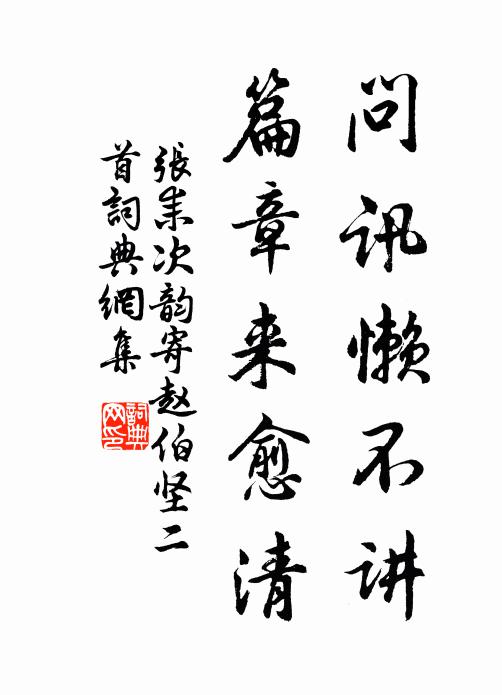 问讯懒不讲
篇章来愈清
張耒次韵寄赵伯坚二
首詞典網集
詞典
网印